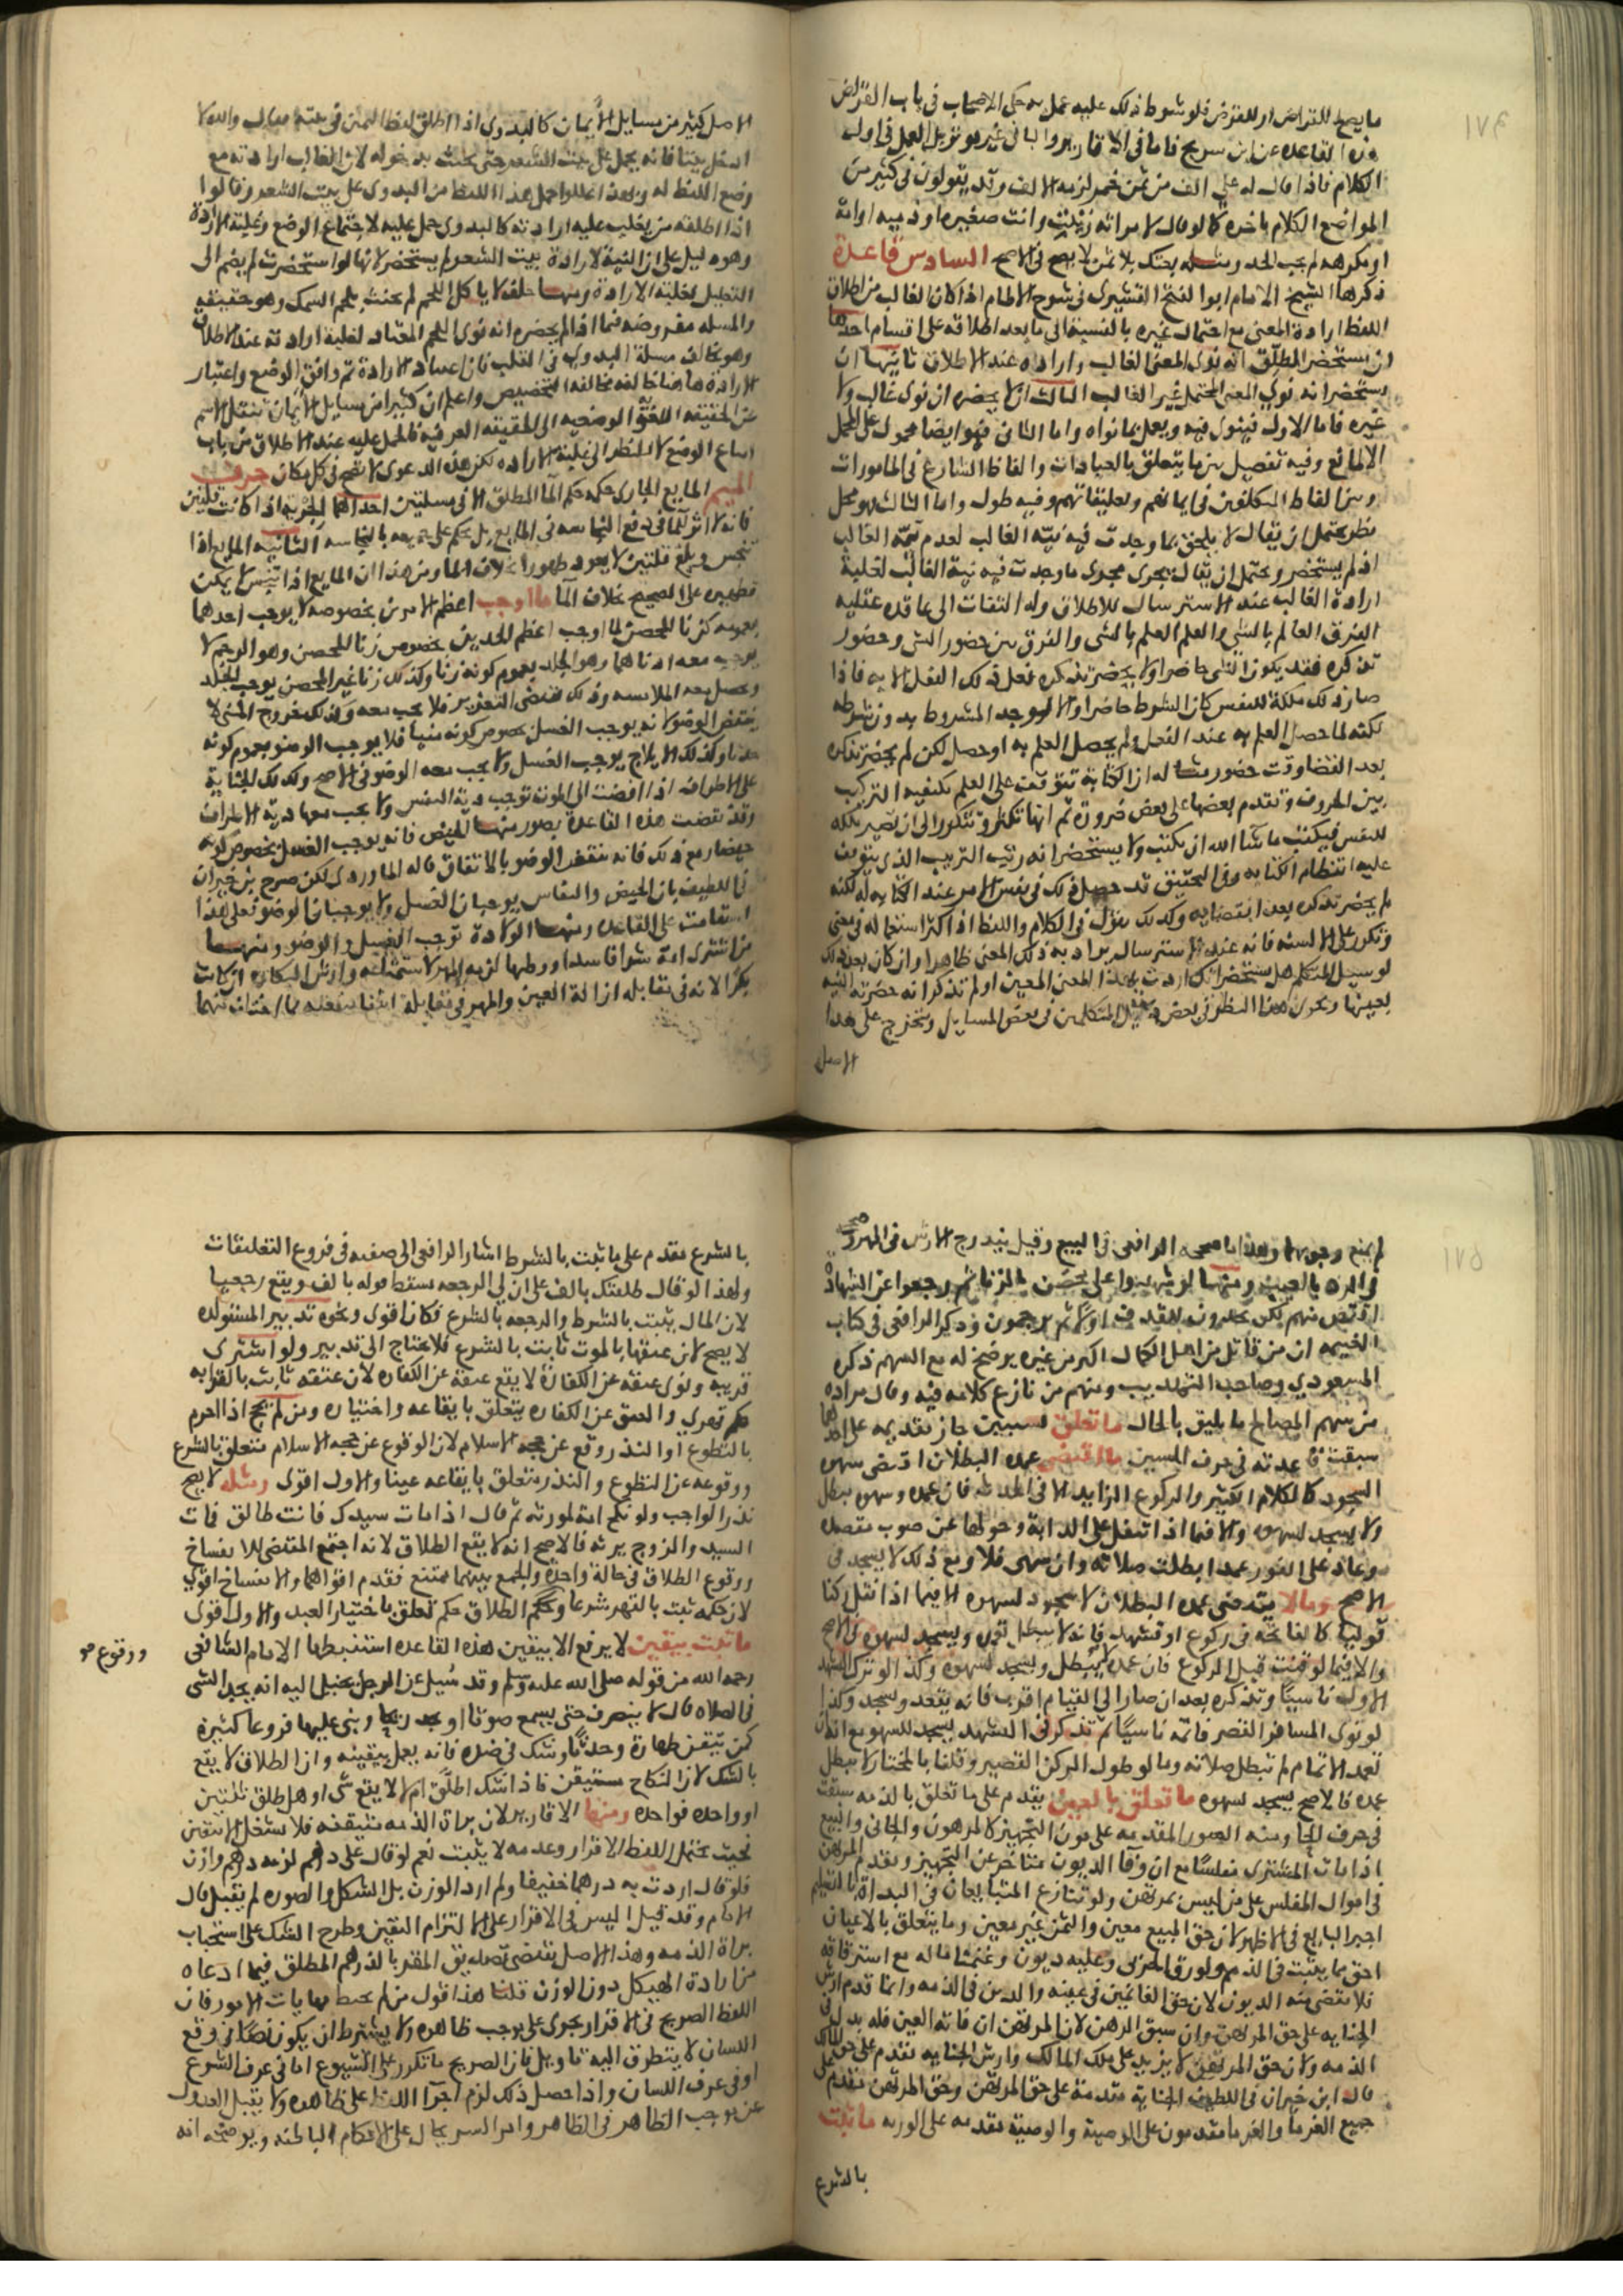 ١٧٤
ما يصح للقراض او للقرض فلو شرط ذلك عليه عمل به حكى الاصحاب في باب القراض
هذه القاعدة عن ابن سريج فاما في الاقارير والباقي غيره نويل العمل في اول
الكلام فاذا قال له علي الف من ثمن خمر لزمه الالف وقد يقولون في كثير من
المواضع الكلام باخره كما لو قال لامراته زنيت وانت صغيرة او ذمية او امة
او مكرهة لم يجب الحد ومثله بعتك بلا ثمن لا يصح في الاصح السادس قاعدة
ذكرها الشيخ الامام ابو الفتح القشيري في شرح الالمام اذا كان الغالب من اطلاق
اللفظ ارادة المعنى مع احتمال غيره بالنسبة الى ما بعد اطلاقه على اقسام احدها
ان يستحضر المطلق انه نوى المعنى الغالب واراده عند الاطلاق ثانيها ان
يستحضر انه نوى المعنى المحتمل غير الغالب الثالث ان لا يحضره ان نوى غالب ولا
غيره فاما الاول فينوى فيه ويعمل بما نواه واما الثاني فهو ايضا محمول على المحمل
الا لمانع وفيه تفصيل بين ما يتعلق بالعبادات والفاظ الشارع في المامورات
وبين الفاظ المكلفين في ايمانهم وتعليقاتهم وفيه طول واما الثالث فهو محل
نظر يحتمل ان يقال لا يلحق بما وجدت فيه نية الغالب لعدم نية الغالب
اذ لم يستحضر ويحتمل ان يقال يجرى مجرى ما وجدت فيه نية الغالب لغلبة
ارادة الغالب عند الاسترسال للاطلاق وله التفات الى قاعدة عقلية
الفرق العالم بالشي والعلم العلم بالشي والفرق بين حضور الشي وحضور
تذكره فقد يكون الشي حاضرا ولا يحضر تذكره فعل ذلك الفعل الا به فاذا
صار ذلك ملكة للنفس كان الشرط حاضرا والا لوجد المشروط بدون شرطه
لكنه لما حصل العلم به عند الفعل ولم يحصل العلم به او حصل لكن لم يحضر تذكره
بعد انقضا وقت حضوره مثاله ان الكتابة تتوقف على العلم بكيفية التركيب
بين الحروف وتقدم بعضها على بعض ضرورة ثم انها تكثر وتتكرر الى ان تصير ملكة
للنفس فيكتب ما شا الله ان يكتب ولا يستحضر انه رتب الترتيب الذي يتوقف
عليه انتظام الكتابة وفي التحقيق قد حصل ذلك في نفس الامر عند الكتابة له لكنه
لم يحضر تذكره بعد انقضائه وكذلك نقول في الكلام واللفظ اذا كثر استعماله في معنى
وتكرر على الالسنة فانه عند الاسترسال يراد به ذلك المعنى ظاهرا وان كان بعد ذلك
لو سيل المتكلم هل يستحضر انك اردت بهذا المعنى المعين او لم تذكر انه حضرته النية
بعينها ويجري هذا النظر في بعض المتكلمين في بعض المسايل ويتخرج على هذا
الاصل
الاصل كثير من مسايل الايمان كالبدوي اذا اطلق لفظ
وضع اللفظ له وبعد اعلوا حمل هذا اللفظ من البدوي على بيت الشعر وقالوا
اذا اطلقه من يغلب عليه ارادته كالبدوي حمل عليه لاجتماع الوضع وغلبة الارادة
وهو دليل على ان النية لارادة بيت الشعر لم يستحضر لانها لو استحضرت لم يضم الى
التعليل لغلبة الارادة ومنها حلف لا ياكل اللحم لم يحنث بلحم السمك وهو حقيقة
والمسلة مفروضة فيما اذا لم يحضره انه نوى اللحم المعتاد لغلبة ارادته عند الاطلاق
وهو يخالف مسلة البدوي في القلب فان اعتياد الارادة ثم وافق الوضع واعتبار
الارادة هاهنا خالفه مخالفة التخصيص واعلم ان كثيرا من مسايل الايمان تنقل الاسم
عن الحقيقة اللغوية الوضعية الى الحقيقة العرفية فالحمل عليه عند الاطلاق من باب
اتباع الوضع لا بالنظر الى غلبة الارادة لكن هذه الدعوى لا تصح في كل مكان حرف
الميم المايع الجاري حكمه حكم الما المطلق الا في مسلتين احداهما الجرية اذا كانت قلتين
فانه لا اثر لها في دفع النجاسة في المايع بل يحكم على جميعه بالنجاسة الثانية المايع اذا
تنجس وبلغ قلتين لا يعود طهورا بخلاف الما ومن هذا ان المايع اذا تنجس لا يمكن
تطهيره على الصحيح بخلاف الما ما اوجب اعظم الامرين بخصوصه لا يوجب احدهما
بعمومه كزنا المحصن لما اوجب اعظم الحدين بخصوص زنا المحصن وهو الرجم لا
يوجب معه ادناهما وهو الجلد بعموم كونه زنا وكذلك زنا غير المحصن يوجب الجلد
وتحصل معه الملامسة وذلك مقتضى التعزير فلا يجب معه وكذلك خروج المني لا
ينتقض الوضو لانه يوجب الغسل بخصوص كونه منيا فلا يوجب الوضو بعموم كونه
حدثا وكذلك الايلاج يوجب الغسل ولا يجب معه الوضو في الاصح وكذلك الجناية
على الاطراف اذا افضت الى الموت توجب دية النفس ولا يجب معها دية الاطراف
وقد نقضت هذه القاعدة بصور منها الحيض فانه يوجب الغسل بخصوص كونه
حيضا ومع ذلك فانه ينقض الوضو بالاتفاق قاله الماوردي لكن صرح ابن خيران
في اللطيف بان الحيض والنفاس يوجبان الغسل ولا يوجبان الوضو فعلى هذا
استقامت على القاعدة ومنها الولادة توجب الغسل والوضو ومنها
من اشترى امة شرا فاسدا ووطيها لزمه المهر لاستمتاعه وارش البكارة ان كانت
بكرا لانه في مقابلة ازالة العين والمهر في مقابلة
١٧٥
لم يمنع وجوبهما وهذا ما صححه الرافعي في البيع وقيل يندرج الارش في المهر وصححه
في الرد بالعيب ومنها لو شهدوا على محصن بالزنا ثم رجعوا عن الشهادة
اقتص منهم لكن يحدون للقذف اولا ثم يرجمون وذكر الرافعي في كتاب
الغنيمة ان من قاتل من اهل الكمال اكثر من غيره يرضخ له مع السهم ذكره
المسعودي وصاحب التهذيب ومنهم من نازع كلامه فيه وقال يزاد
من سهم المصالح ما يليق بالحال ما تعلق بسببين جاز تقديمه على احدهما
سبقت قاعدته في حرف السين ما اقتضى عمده البطلان اقتضى سهوه
السجود كالكلام الكثير والركوع الزايد الا في الحدث فان عمده وسهوه يبطل
ولا يسجد لسهوه والا فيما اذا تنفل على الدابة وحولها عن صوب مقصده
وعاد على الفور عمدا بطلت صلاته وان سهى فلا ومع ذلك لا يسجد في
الاصح وما لا يقتضي عمده البطلان لا سجود لسهوه الا فيما اذا نقل ركنا
قوليا كالفاتحة في ركوع او تشهد فانه لا يبطل عمده ويسجد لسهوه في الاصح
والا فيما لو قنت قبل الركوع فان عمده لا يبطل ويسجد لسهوه وكذا لو ترك التشهد
الاول ناسيا وتذكره بعد ان صار الى القيام اقرب فانه يقعد ويسجد وكذا
لو نوى المسافر القصر فاتمه ناسيا ثم تذكر في التشهد يسجد للسهو مع انه لو
تعمد الاتمام لم تبطل صلاته وما لو طول الركن القصير وقلنا بالمختار لا يبطل
عمده فالاصح يسجد لسهوه ما تعلق بالعين يقدم على ما تعلق بالذمة سبقت
في حرف الحا ومنه الصور المقدمة على مون التجهيز كالمرهون والجاني والمبيع
اذا مات المشتري مفلسا مع ان وفا الديون متاخر عن التجهيز ويقدم المرتهن
في اموال المفلس على من ليس بمرتهن ولو تنازع المتبايعان في البداة بالتسليم
اجبر البايع في الاظهر لان حق المبيع معين والثمن غير معين وما يتعلق بالاعيان
احق مما يثبت في الذمم ولو رق الحربي وعليه ديون وغنمنا ماله مع استرقاقه
فلا تقضى منه الديون لان حق الغانمين في عينه والدين في الذمة وانما قدم ارش
الجناية على حق المرتهن وان سبق الرهن لان المرتهن ان فاته العين فله بدل في
الذمة ولان حق المرتهن لا يزيد على ملك المالك وارش الجناية يقدم على حق المالك
قال ابن خيران في اللطيف الجناية متقدمة على حق المرتهن وحق المرتهن مقدم على
جميع الغرما والغرما مقدمون على الوصية والوصية مقدمة على الورثة ما ثبت
بالشرع
بالشرع مقدم على ما ثبت بالشرط اشار الرافعي الى صفيه في فروع التعليقات
ولهذا لو قال طلقتك بالف على ان لي الرجعة سقط قوله بالف ويقع رجعيا
لان المال يثبت بالشرط والرجعة بالشرع فكان اقوى ونحوه تدبير المستولدة
لا يصح لان عتقها بالموت ثابت بالشرع فلا يحتاج الى تدبير ولو اشترى
قريبه ونوى عتقه عن الكفارة لا يقع عتقه عن الكفارة لان عتقه ثابت بالقرابة
حكم قهري والعتق عن الكفارة يتعلق بايقاعه واختياره ومن لم يحج اذا احرم
بالتطوع او النذر وقع عن حجة الاسلام لان الوقوع عن حجة الاسلام متعلق بالشرع
ووقوعه عن التطوع والنذر متعلق بايقاعه عينا والاول اقوى ومثله لا يصح
نذر الواجب ولو نكح امة لمورثه ثم قال اذا مات سيدك فانت طالق فمات
السيد والزوج يرثه فالاصح انه لا يقع الطلاق لانه اجتمع المقتضي للانفساخ
ووقوع الطلاق في حالة واحدة والجمع بينهما ممتنع فقدم اقواهما والانفساخ اقوى
لان حكمه ثبت بالقهر شرعا وحكم الطلاق حكم تعلق باختيار العبد والاول اقوى
ما ثبت بيقين لا يرفع الا بيقين هذه القاعدة استنبطها الامام الشافعي
رحمه الله من قوله صلى الله عليه وسلم وقد سيل عن الرجل يخيل اليه انه يجد الشي
في الصلاة قال لا ينصرف حتى يسمع صوتا او يجد ريحا وبنى عليها فروعا كثيرة
كمن تيقن طهارة وحدثا وشك في ضده فانه يعمل بيقينه وان الطلاق لا يقع
بالشك لان النكاح مستيقن فاذا شك اطلق ام لا لا يقع شي او هل طلق ثلثين
او واحدة فواحدة ومنها الاقارير لان براة الذمة متيقنة فلا تشتغل الا بيقين
بحيث يحتمل اللفظ الاقرار وعدمه لا يثبت نعم لو قال علي درهم لزمه درهم وازن
فلو قال اردت به درهما خفيفا ولم ارد الوزن بل الشكل والصورة لم يقبل قال
الامام وقد قيل اليس في الاقرار على الالتزام اليقين وطرح الشك على استصحاب
براة الذمة وهذا الاصل يقتضي تصديق المقر بالدرهم المطلق فيما ادعاه
من ارادة الهيكل دون الوزن قلنا هذا قول من لم يحط بنهايات الامور فان
اللفظ الصريح في الاقرار يجرى على موجب ظاهره ولا يشترط ان يكون نصا في وقع
اللسان لا يتطرق اليه تاويل فان الصريح ما تكرر على الشيوع اما في عرف الشرع
او في عرف اللسان واذا حصل ذلك لزم اجرا اللفظ على ظاهره ولا يقبل العدول
عن موجب الظاهر في الظاهر وامر السر يحال على الاحكام الباطنة ويوضحه انه